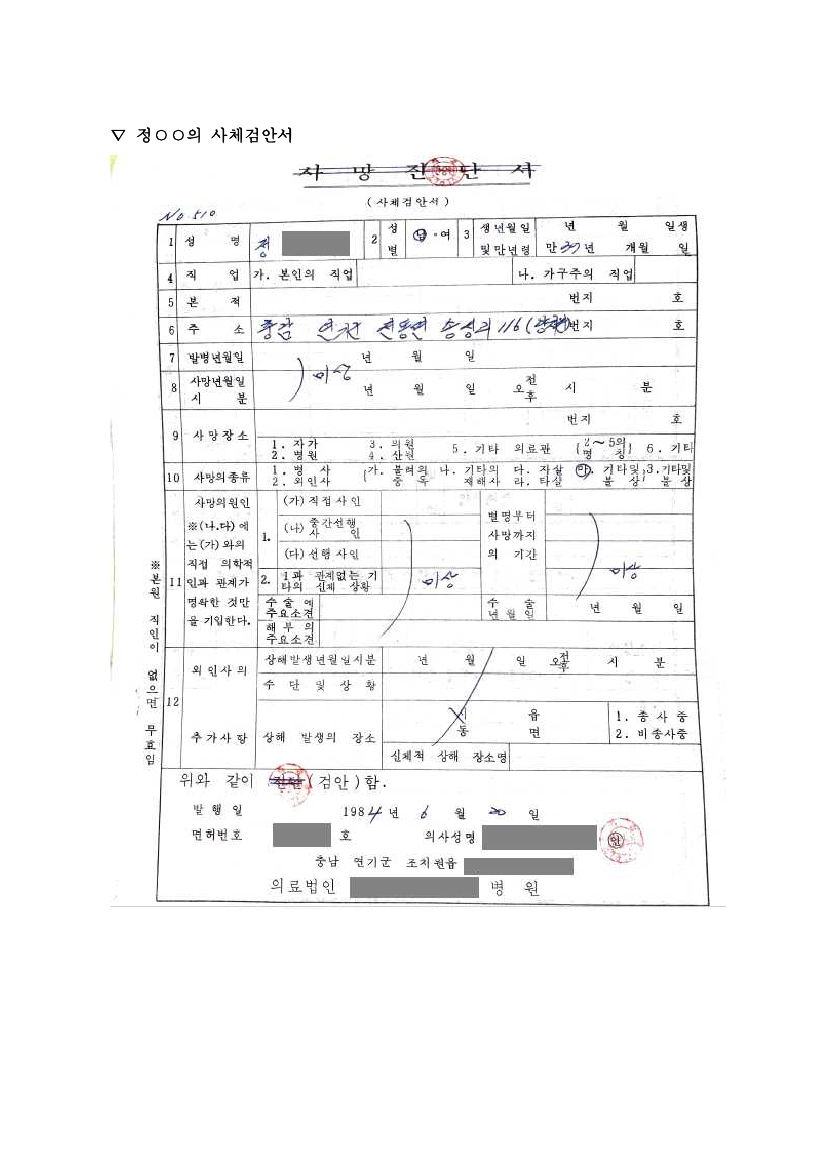 ▽ 정○○의 사체검안서
사 망 진 단 서
(사체검안서)
No 510
1 성 명 정 2 성별 남·여 3 생년월일 및만년령 년 월 일생
만 년 개월 일
4 직 업 가. 본인의 직업 나. 가구주의 직업
5 본 적 번지 호
6 주 소 충남 연기군 전동면 송성리 116 번지 호
7 발병년월일 년 월 일
미상
8 사망년월일 시 분 년 월 일 오전후 시 분
9 사망장소 번지 호
1. 자가 3. 의원 5. 기타 의료관 (2~5의 명칭) 6. 기타
2. 병원 4. 산원
10 사망의종류 1. 병 사 가. 불려의 중독 나. 기타의 재해사 다. 자살 마. 기타및 불상 3. 기타및 불상
2. 외인사 라. 타살
11 사망의원인
※(나.다)에
는(가)와의
직접 의학적
인과 관계가
명확한 것만
을 기입한다.
1. (가)직접사인
(나)중간선행사인
(다)선행사인
발병부터
사망까지
의 기간
미상
2. 1과 관계없는 기타의 신체 상황 미상
수술에 주요소견 수술 년월일 년 월 일
해부의 주요소견
12 외인사의
추가사항
상해발생년월일시분 년 월 일 오전후 시 분
수단 및 상황
상해 발생의 장소 시 읍
동 면
1. 종사중
2. 비종사중
신체적 상해 장소명
※본원 직인이 없으면 무효임
위와 같이 진단(검안)함.
발행일 1984년 6월 20일
면허번호 호 의사성명 인
충남 연기군 조치원읍
의료법인 병원